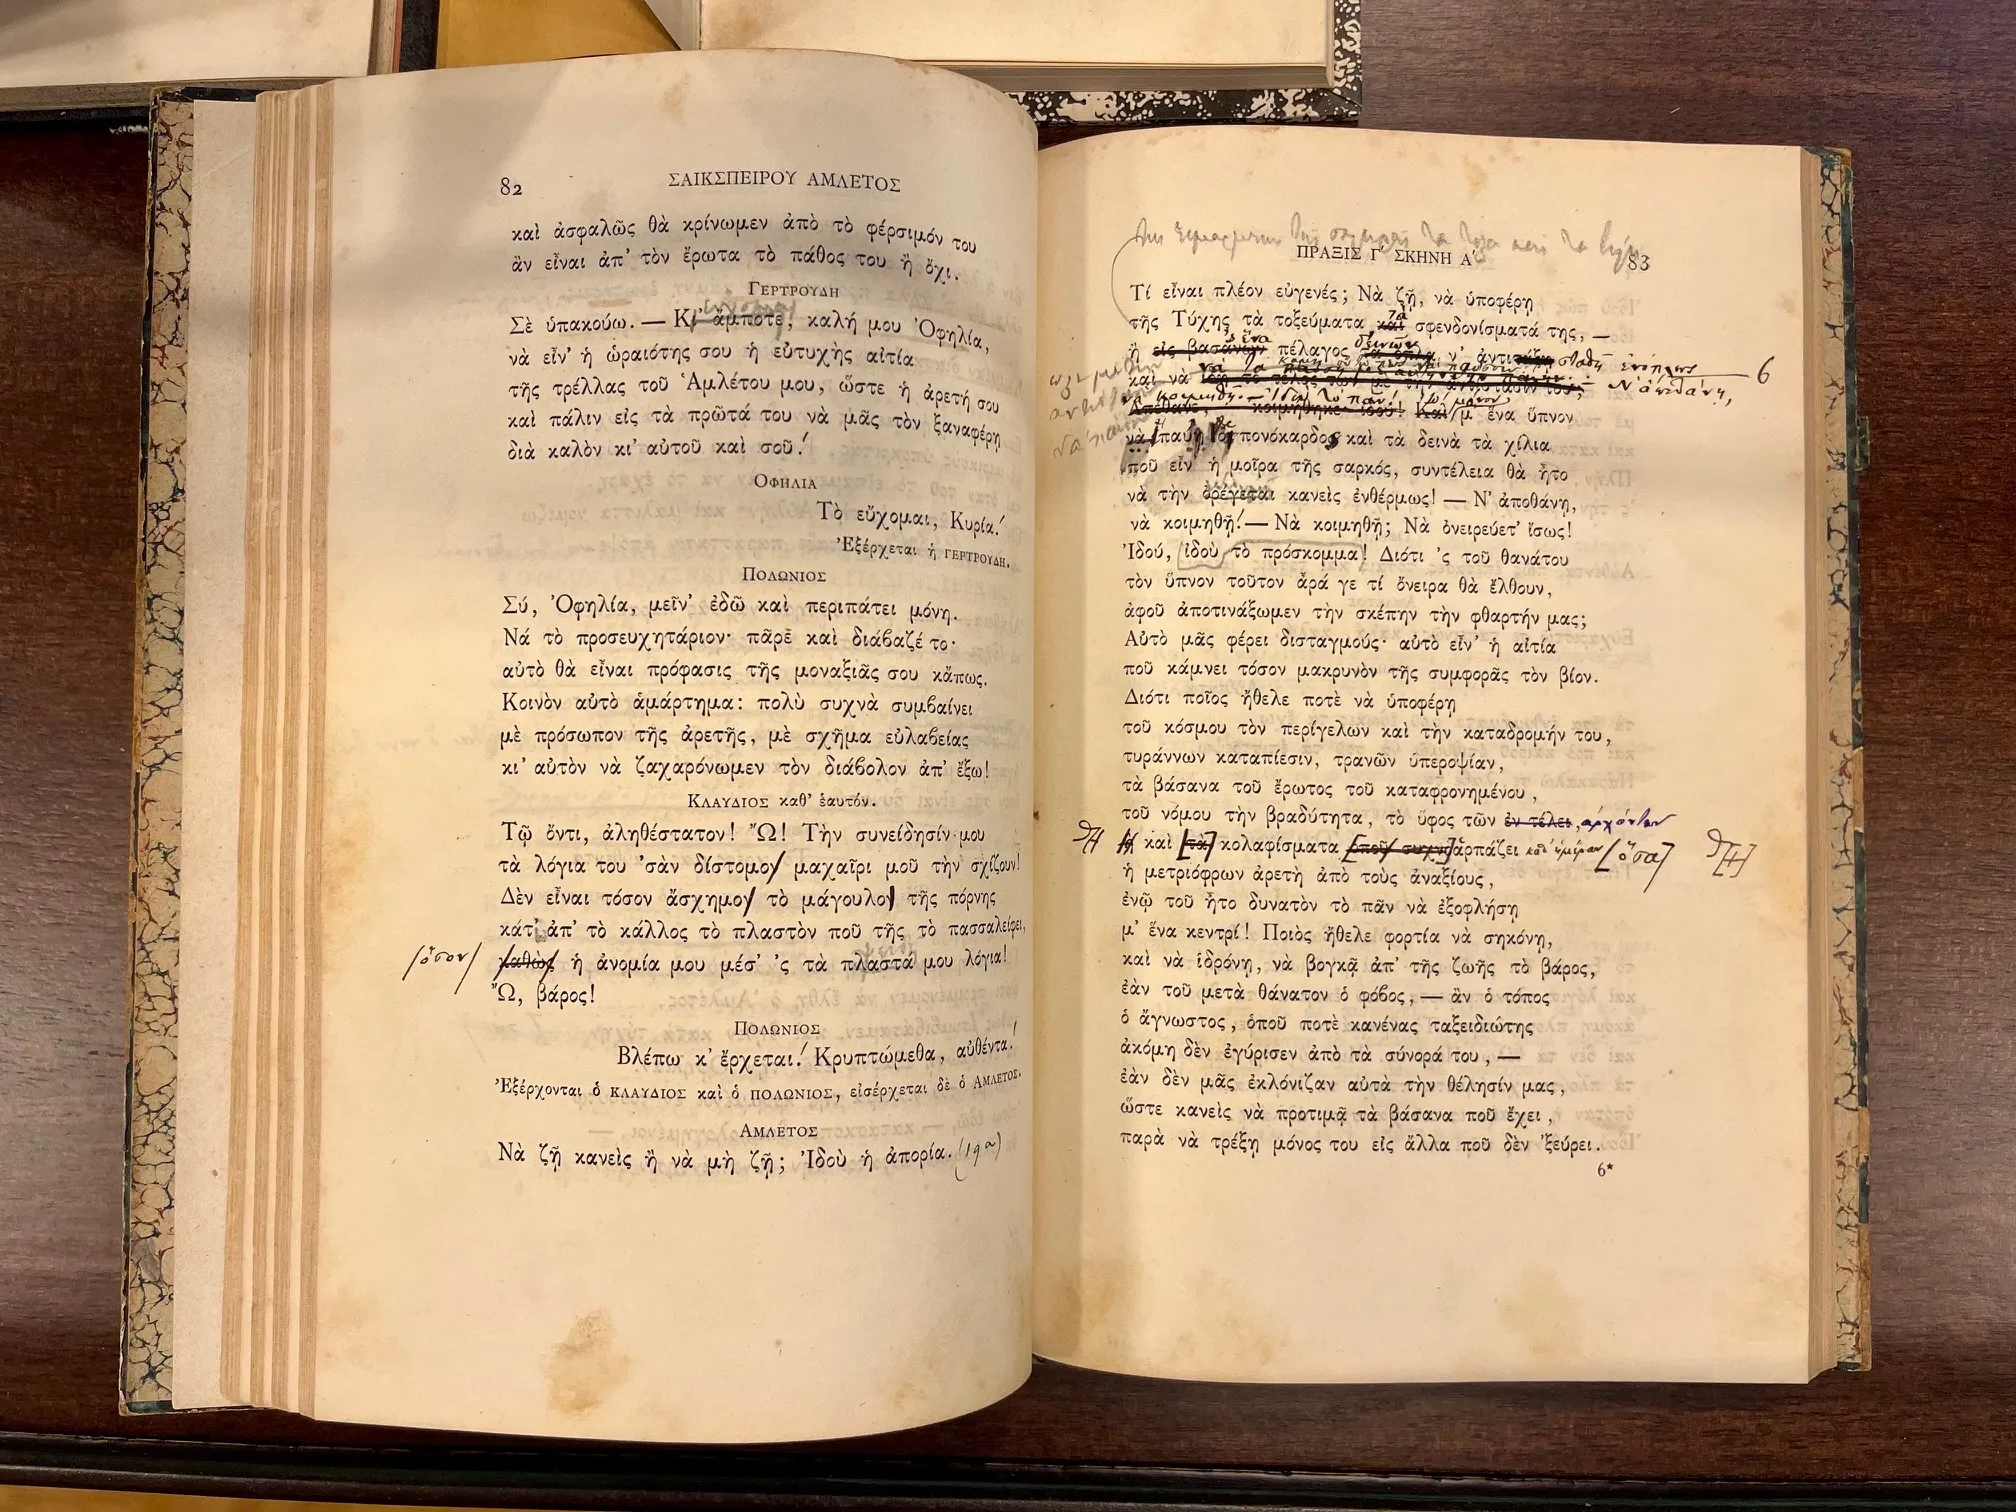 82
ΣΑΙΚΣΠΕΙΡΟΥ ΑΜΛΕΤΟΣ
καὶ ἀσφαλῶς θὰ κρίνωμεν ἀπὸ τὸ φέρσιμόν του
ἂν εἶναι ἀπ' τὸν ἔρωτα τὸ πάθος του ἢ ὄχι.
ΓΕΡΤΡΟΥΔΗ
Σὲ ὑπακούω. — Κι' ἄμποτε, καλή μου Ὀφηλία,
νὰ εἶν' ἡ ὡραιότης σου ἡ εὐτυχὴς αἰτία
τῆς τρέλλας τοῦ Ἀμλέτου μου, ὥστε ἡ ἀρετή σου
καὶ πάλιν εἰς τὰ πρῶτά του νὰ μᾶς τὸν ξαναφέρῃ
διὰ καλὸν κι' αὐτοῦ καὶ σοῦ!
ΟΦΗΛΙΑ
Τὸ εὔχομαι, Κυρία!
Ἐξέρχεται ἡ ΓΕΡΤΡΟΥΔΗ.
ΠΟΛΩΝΙΟΣ
Σύ, Ὀφηλία, μεῖν' ἐδῶ καὶ περιπάτει μόνη.
Νά τὸ προσευχητάριον· πᾶρε καὶ διάβαζέ το·
αὐτὸ θὰ εἶναι πρόφασις τῆς μοναξιᾶς σου κἄπως.
Κοινὸν αὐτὸ ἁμάρτημα: πολὺ συχνὰ συμβαίνει
μὲ πρόσωπον τῆς ἀρετῆς, μὲ σχῆμα εὐλαβείας
κι' αὐτὸν νὰ ζαχαρόνωμεν τὸν διάβολον ἀπ' ἔξω!
ΚΛΑΥΔΙΟΣ καθ' ἑαυτόν.
Τῷ ὄντι, ἀληθέστατον! Ὢ! Τὴν συνείδησίν μου
τὰ λόγια του 'σὰν δίστομο μαχαῖρι μοῦ τὴν σχίζουν!
Δὲν εἶναι τόσον ἄσχημο τὸ μάγουλο τῆς πόρνης
κάτι ἀπ' τὸ κάλλος τὸ πλαστὸν ποῦ τῆς τὸ πασσαλείφει,
ὅσον καθὼς ἡ ἀνομία μου μέσ' 'ς τὰ πλαστά μου λόγια!
Ὢ, βάρος!
ΠΟΛΩΝΙΟΣ
Βλέπω κ' ἔρχεται! Κρυπτώμεθα, αὐθέντα!
Ἐξέρχονται ὁ ΚΛΑΥΔΙΟΣ καὶ ὁ ΠΟΛΩΝΙΟΣ, εἰσέρχεται δὲ ὁ ΑΜΛΕΤΟΣ.
ΑΜΛΕΤΟΣ
Νὰ ζῇ κανεὶς ἢ νὰ μὴ ζῇ; Ἰδοὺ ἡ ἀπορία.
ΠΡΑΞΙΣ Γ' ΣΚΗΝΗ Α'
83
Τί εἶναι πλέον εὐγενές; Νὰ ζῇ, νὰ ὑποφέρῃ
τῆς Τύχης τὰ τοξεύματα καὶ σφενδονίσματά της, —
ἢ πέλαγος ν'
καὶ νὰ Ν' ἀποθάνῃ, 6
Ἀπέθανε, κοιμήθηκε ἰδού! Καὶ μ' ἕνα ὕπνον
νὰ παύῃ πονόκαρδος καὶ τὰ δεινὰ τὰ χίλια
ποῦ εἶν' ἡ μοῖρα τῆς σαρκός, συντέλεια θὰ ἦτο
νὰ τὴν ὀρέγεται κανεὶς ἐνθέρμως! — Ν' ἀποθάνῃ,
νὰ κοιμηθῇ! — Νὰ κοιμηθῇ; Νὰ ὀνειρεύετ' ἴσως!
Ἰδού, ἰδοὺ τὸ πρόσκομμα! Διότι 'ς τοῦ θανάτου
τὸν ὕπνον τοῦτον ἆρά γε τί ὄνειρα θὰ ἔλθουν,
ἀφοῦ ἀποτινάξωμεν τὴν σκέπην τὴν φθαρτήν μας;
Αὐτὸ μᾶς φέρει δισταγμούς· αὐτὸ εἶν' ἡ αἰτία
ποῦ κάμνει τόσον μακρυνὸν τῆς συμφορᾶς τὸν βίον.
Διότι ποῖος ἤθελε ποτὲ νὰ ὑποφέρῃ
τοῦ κόσμου τὸν περίγελων καὶ τὴν καταδρομήν του,
τυράννων καταπίεσιν, τρανῶν ὑπεροψίαν,
τὰ βάσανα τοῦ ἔρωτος τοῦ καταφρονημένου,
τοῦ νόμου τὴν βραδύτητα, τὸ ὕφος τῶν ἐν τέλει, ἀρχόντων
καὶ [τὰ] κολαφίσματα [ὁποῦ συχνὰ] ἁρπάζει καθ' ἡμέραν [ὅσα]
ἡ μετριόφρων ἀρετὴ ἀπὸ τοὺς ἀναξίους,
ἐνῷ τοῦ ἦτο δυνατὸν τὸ πᾶν νὰ ἐξοφλήσῃ
μ' ἕνα κεντρί! Ποιὸς ἤθελε φορτία νὰ σηκόνῃ,
καὶ νὰ ἱδρόνῃ, νὰ βογκᾷ ἀπ' τῆς ζωῆς τὸ βάρος,
ἐὰν τοῦ μετὰ θάνατον ὁ φόβος, — ἂν ὁ τόπος
ὁ ἄγνωστος, ὁποῦ ποτὲ κανένας ταξειδιώτης
ἀκόμη δὲν ἐγύρισεν ἀπὸ τὰ σύνορά του, —
ἐὰν δὲν μᾶς ἐκλόνιζαν αὐτὰ τὴν θέλησίν μας,
ὥστε κανεὶς νὰ προτιμᾷ τὰ βάσανα ποῦ ἔχει,
παρὰ νὰ τρέξῃ μόνος του εἰς ἄλλα ποῦ δὲν 'ξεύρει.
6*